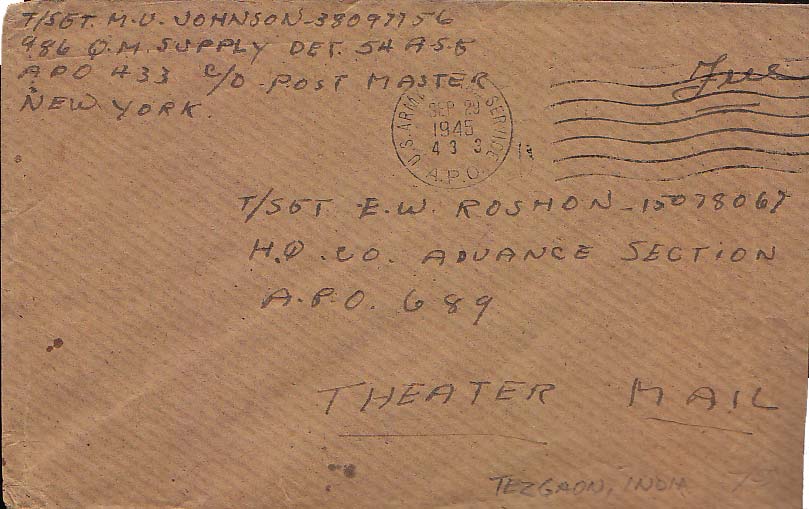 T/SGT. M.U. JOHNSON-38097756
986 Q.M. SUPPLY DET. 54 ASG
APO 433 C/O POST MASTER
NEW YORK.
Free
U.S. ARMY SERVICE
SEP 29
1945
4 3 3
A.P.O.
T/SGT. E.W. ROSHON-15078067
H.Q. CO. ADVANCE SECTION
A.P.O. 689
THEATER MAIL
TEZGAON, INDIA